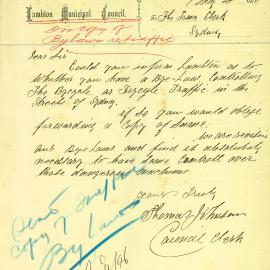 Lambton Municipal Council.
For copy of
Bylaws re traffic
The Town Clerk
Sydney
Dear Sir
Could you inform Lambton as to
whether you have a Bye-Law, Controlling
the Bicycle as Tricycle Traffic in the
Streets of Sydney
if so you would oblige
forwarding a Copy of Same.
we are revising
our Bye Laws and find it absolutely
necessary to have some Control over
these dangerous machines
Yours Truly
Thomas Johnson
Council Clerk
Send
Copy of
By laws